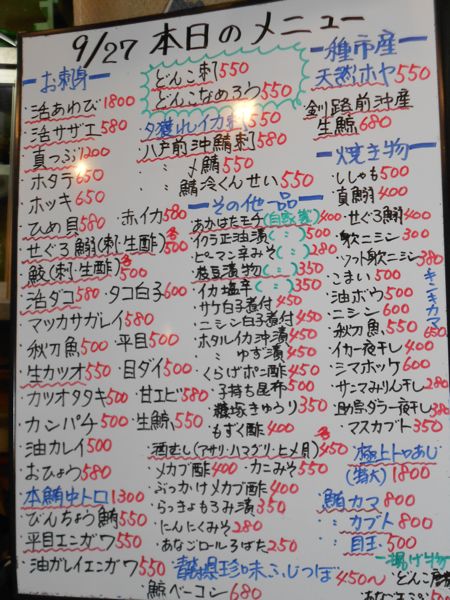 9/27 本日のメニュー
お刺身
・活あわび1800
・活サザエ580
・真つぶ1200
・ホタテ650
・ホッキ650
・ひめ貝580 ・赤イカ580
・せぐろ鰯(刺・生酢)各500
・鮫(刺・生酢)各500
・活ダコ580 ・タコ白子600
・マツカサガレイ580
・秋刀魚500 ・平目500
・生カツオ550 ・目ダイ500
・カツオタタキ500 ・甘エビ580
・カンパチ500 ・生鯨550
・油カレイ500
・おひょう580
・本鮪中トロ1300
・びんちょう鮪550
・平目エンガワ550
・油ガレイエンガワ550
どんこ刺550
どんこなめろう550
夕獲れイカ刺550
八戸前沖鯖刺580
〃 〆鯖550
〃 鯖冷くんせい550
その他一品
・あかはた玉子(自家製)400
・イクラ正油漬(〃)500
・ピーマン辛みそ(〃)280
・枝豆漬物(〃)350
・イカ塩辛(〃)380
・サケ白子煮付450
・ニシン白子煮付450
・ホタルイカ沖漬450
・〃 ゆず漬450
・くらげポン酢450
・子持ち昆布500
・きゅうり350
・もずく酢400
・酒むし(アサリ・ハマグリ・ヒメ貝)各450
・メカブ酢400 ・カニみそ550
・ぶっかけメカブ酢400
・らっきょもろみ漬350
・にんにくみそ280
・あなごロールろばた250
青森県珍味ふじつぼ450〜
鯨ベーコン680
種市産
天然ホヤ550
釧路前沖産
生鯨680
焼き物
・ししゃも500
・真鰯400
・せぐろ鰯400
・歌ニシン300
・ソフト歌ニシン380
・こまい500
・油ボウ500
・ニシン600
・秋刀魚550
・イカ一夜干し400
・シマホッケ600
・サンマみりん干し280
・助宗タラ一夜干し380
・マスカブト350
きんきカマ650
・極上トロあじ
(特大)1800
・鮪カマ800
・〃カブト800
・〃目玉500
揚げ物
・どんこ唐揚
・あなご